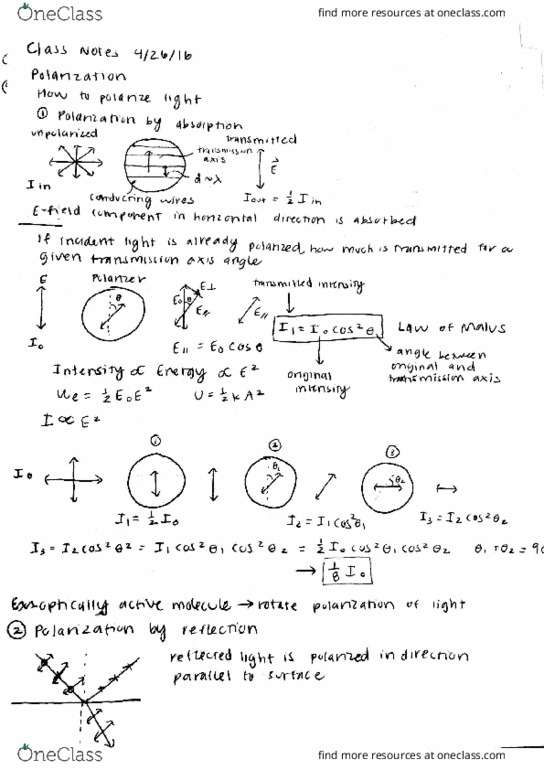 OneClass
find more resources at oneclass.com
Class Notes 4/26/16
Polarization
How to polarize light
① Polarization by absorption
unpolarized
transmitted
transmission axis
E
d~λ
I in
conducting wires
Iout = ½ I in
E-field component in horizontal direction is absorbed
If incident light is already polarized, how much is transmitted for a
given transmission axis angle
E
Polarizer
E⊥
transmitted intensity
θ
E₀
θ
E∥
E∥
I₁ = I₀ cos²θ
Law of Malus
I₀
E∥ = E₀ cos θ
angle between
original and
transmission axis
Intensity ∝ Energy ∝ E²
original
intensity
ue = ½ E₀E²
U = ½ kA²
I ∝ E²
①
②
③
I₀
θ₁
θ₂
I₁ = ½ I₀
I₂ = I₁cos²θ₁
I₃ = I₂ cos²θ₂
I₃ = I₂cos²θ² = I₁cos²θ₁ cos²θ₂ = ½ I₀ cos²θ₁ cos²θ₂ θ₁+θ₂ = 90
→ ⅛ I₀
Ex: optically active molecule → rotate polarization of light
② Polarization by reflection
reflected light is polarized in direction
parallel to surface
OneClass
find more resources at oneclass.com